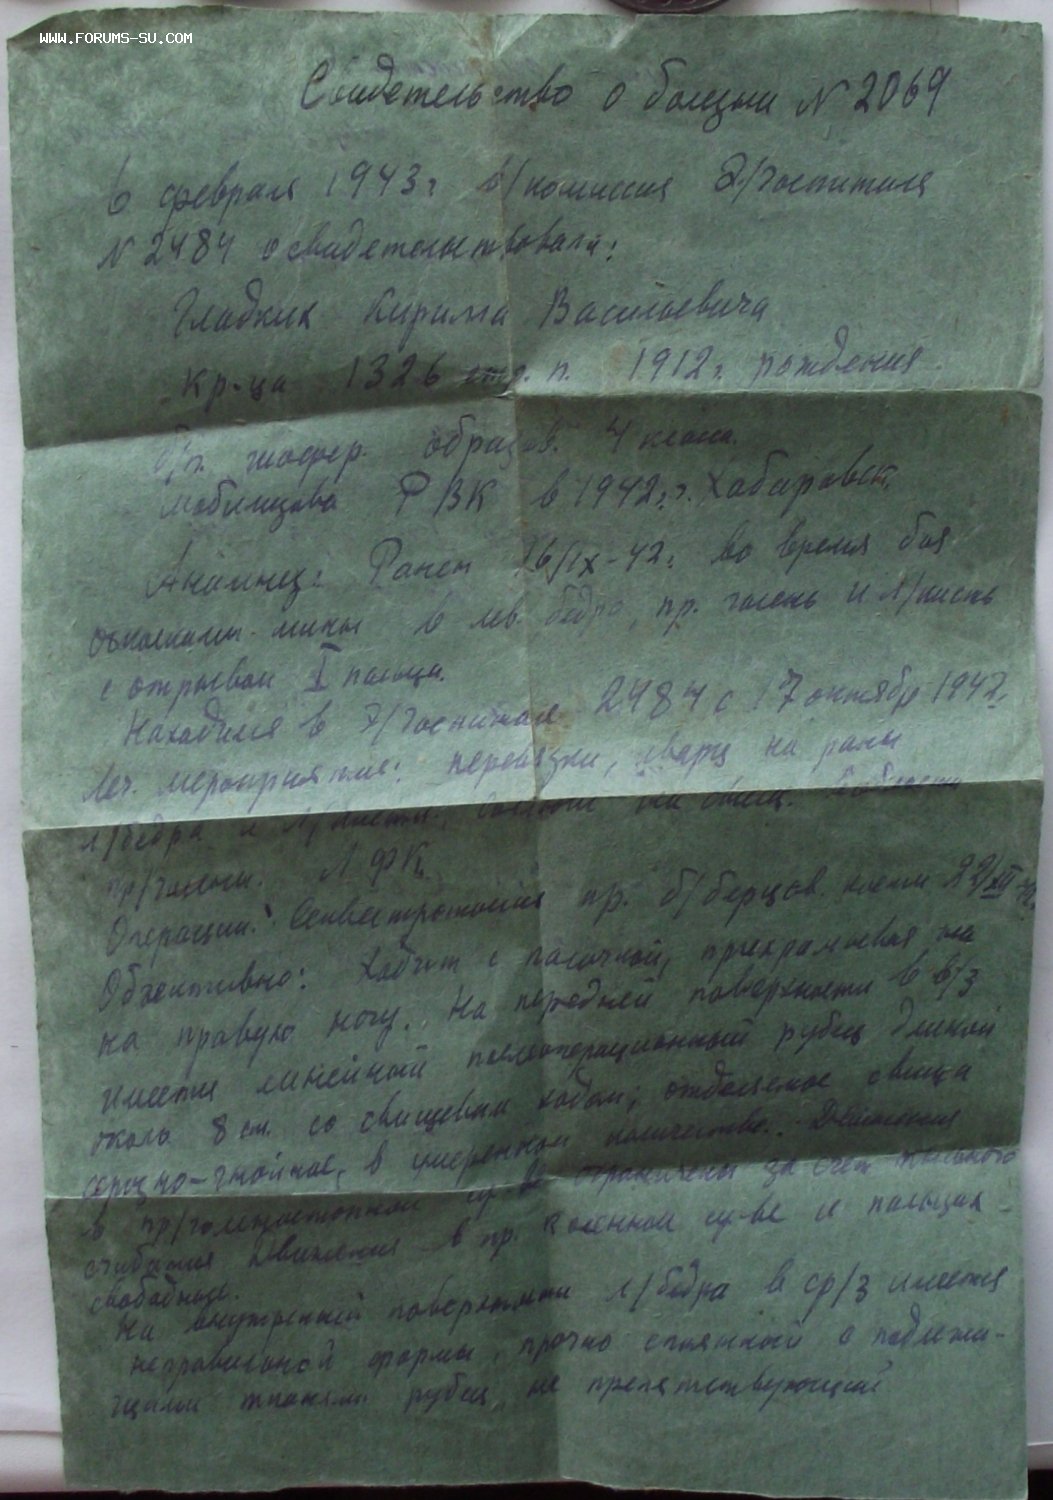 WWW.FORUMS-SU.COM
Свидетельство о болезни N 2069
6 февраля 1943 г. в/комиссия Э/госпиталя
N 2484 освидетельствовала:
Гладких Кирилла Васильевича
кр-ца 1326 стр. п. 1912 г. рождения
б/п. шофер. образов. 4 класса.
Мобилизован РВК в 1942 г. г. Хабаровск.
Анамнез: Ранен 16/IX-42 г. во время боя
осколками мины в лев. бедро, пр. голень и л/кисть
с отрывом I пальца.
Находился в Э/госпитале 2484 с 17 октября 1942 г.
Леч. мероприятие: перевязки, кварц на раны
л/бедра и л/кисти, на
пр/голени. ЛФК
Операции: Секвестротомия пр. б/берцов. кости 22/XII-42
Объективно: Ходит с палочкой, прихрамывая на
на правую ногу. На передней поверхности в в/з
имеется линейный послеоперационный рубец длиной
около 8 см. со свищевым ходом, отделяемое свища
серозно-гнойное, в умеренном количестве. Движения
в пр/голеностопном су-ве ограничены за счет тыльного
сгибания Движения в пр. коленном су-ве и пальцах
свободные.
На внутренней поверхности л/бедра в ср/з имеется
неправильной формы, прочно спаянный с подлежа-
щими тканями рубец, не препятствующий